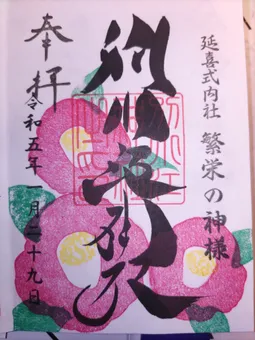 延喜式内社 繁栄の神様
別小江神社
奉拝
令和五年一月二十九日